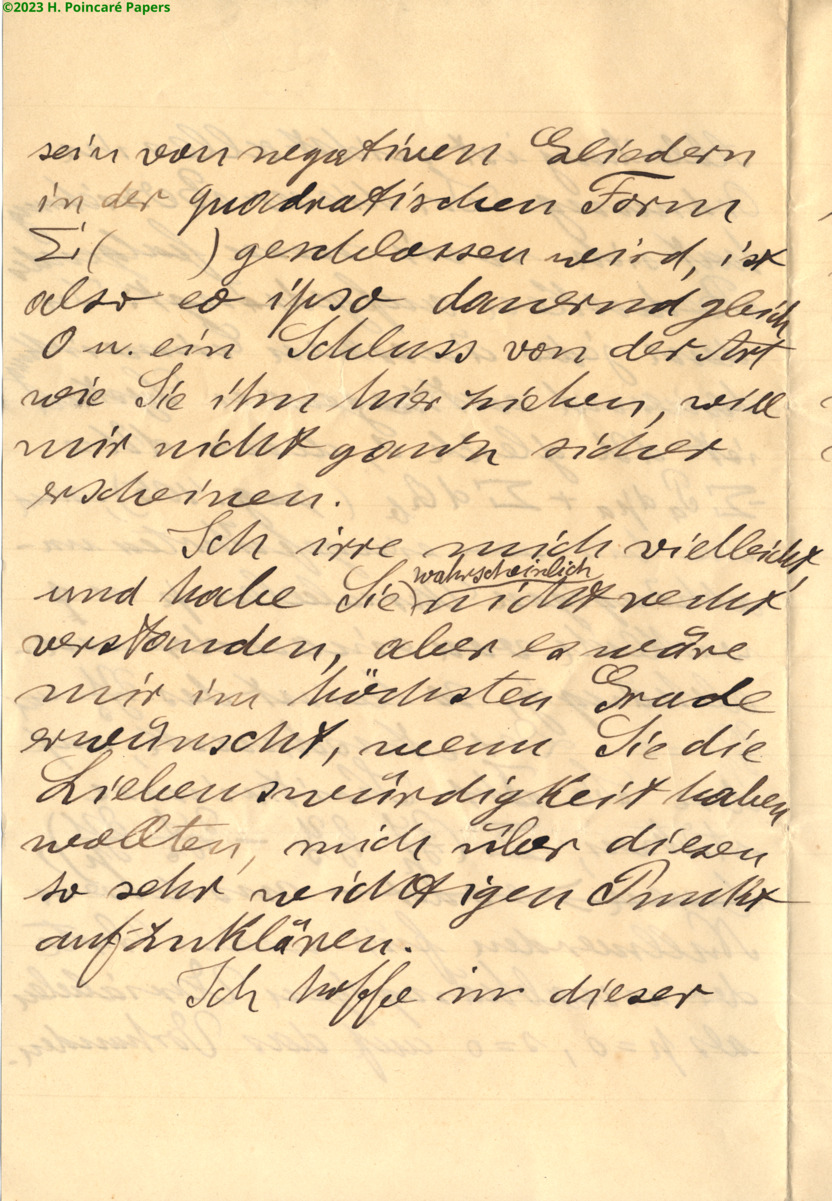 ©2023 H. Poincaré Papers
sein von negativen Gliedern
in der quadratischen Form
Σ( ) geschlossen wird, ist
also eo ipso dauernd gleich
0 u. ein Schluss von der Art
wie Sie ihn hier ziehen, will
mir nicht ganz sicher
erscheinen.
Ich irre mich vielleicht,
wahrscheinlich
und habe Sie nicht recht
verstanden, aber es wäre
mir im höchsten Grade
erwünscht, wenn Sie die
Liebenswürdigkeit haben
wollten, mich über diesen
so sehr wichtigen Punkt
aufzuklären.
Ich hoffe in dieser